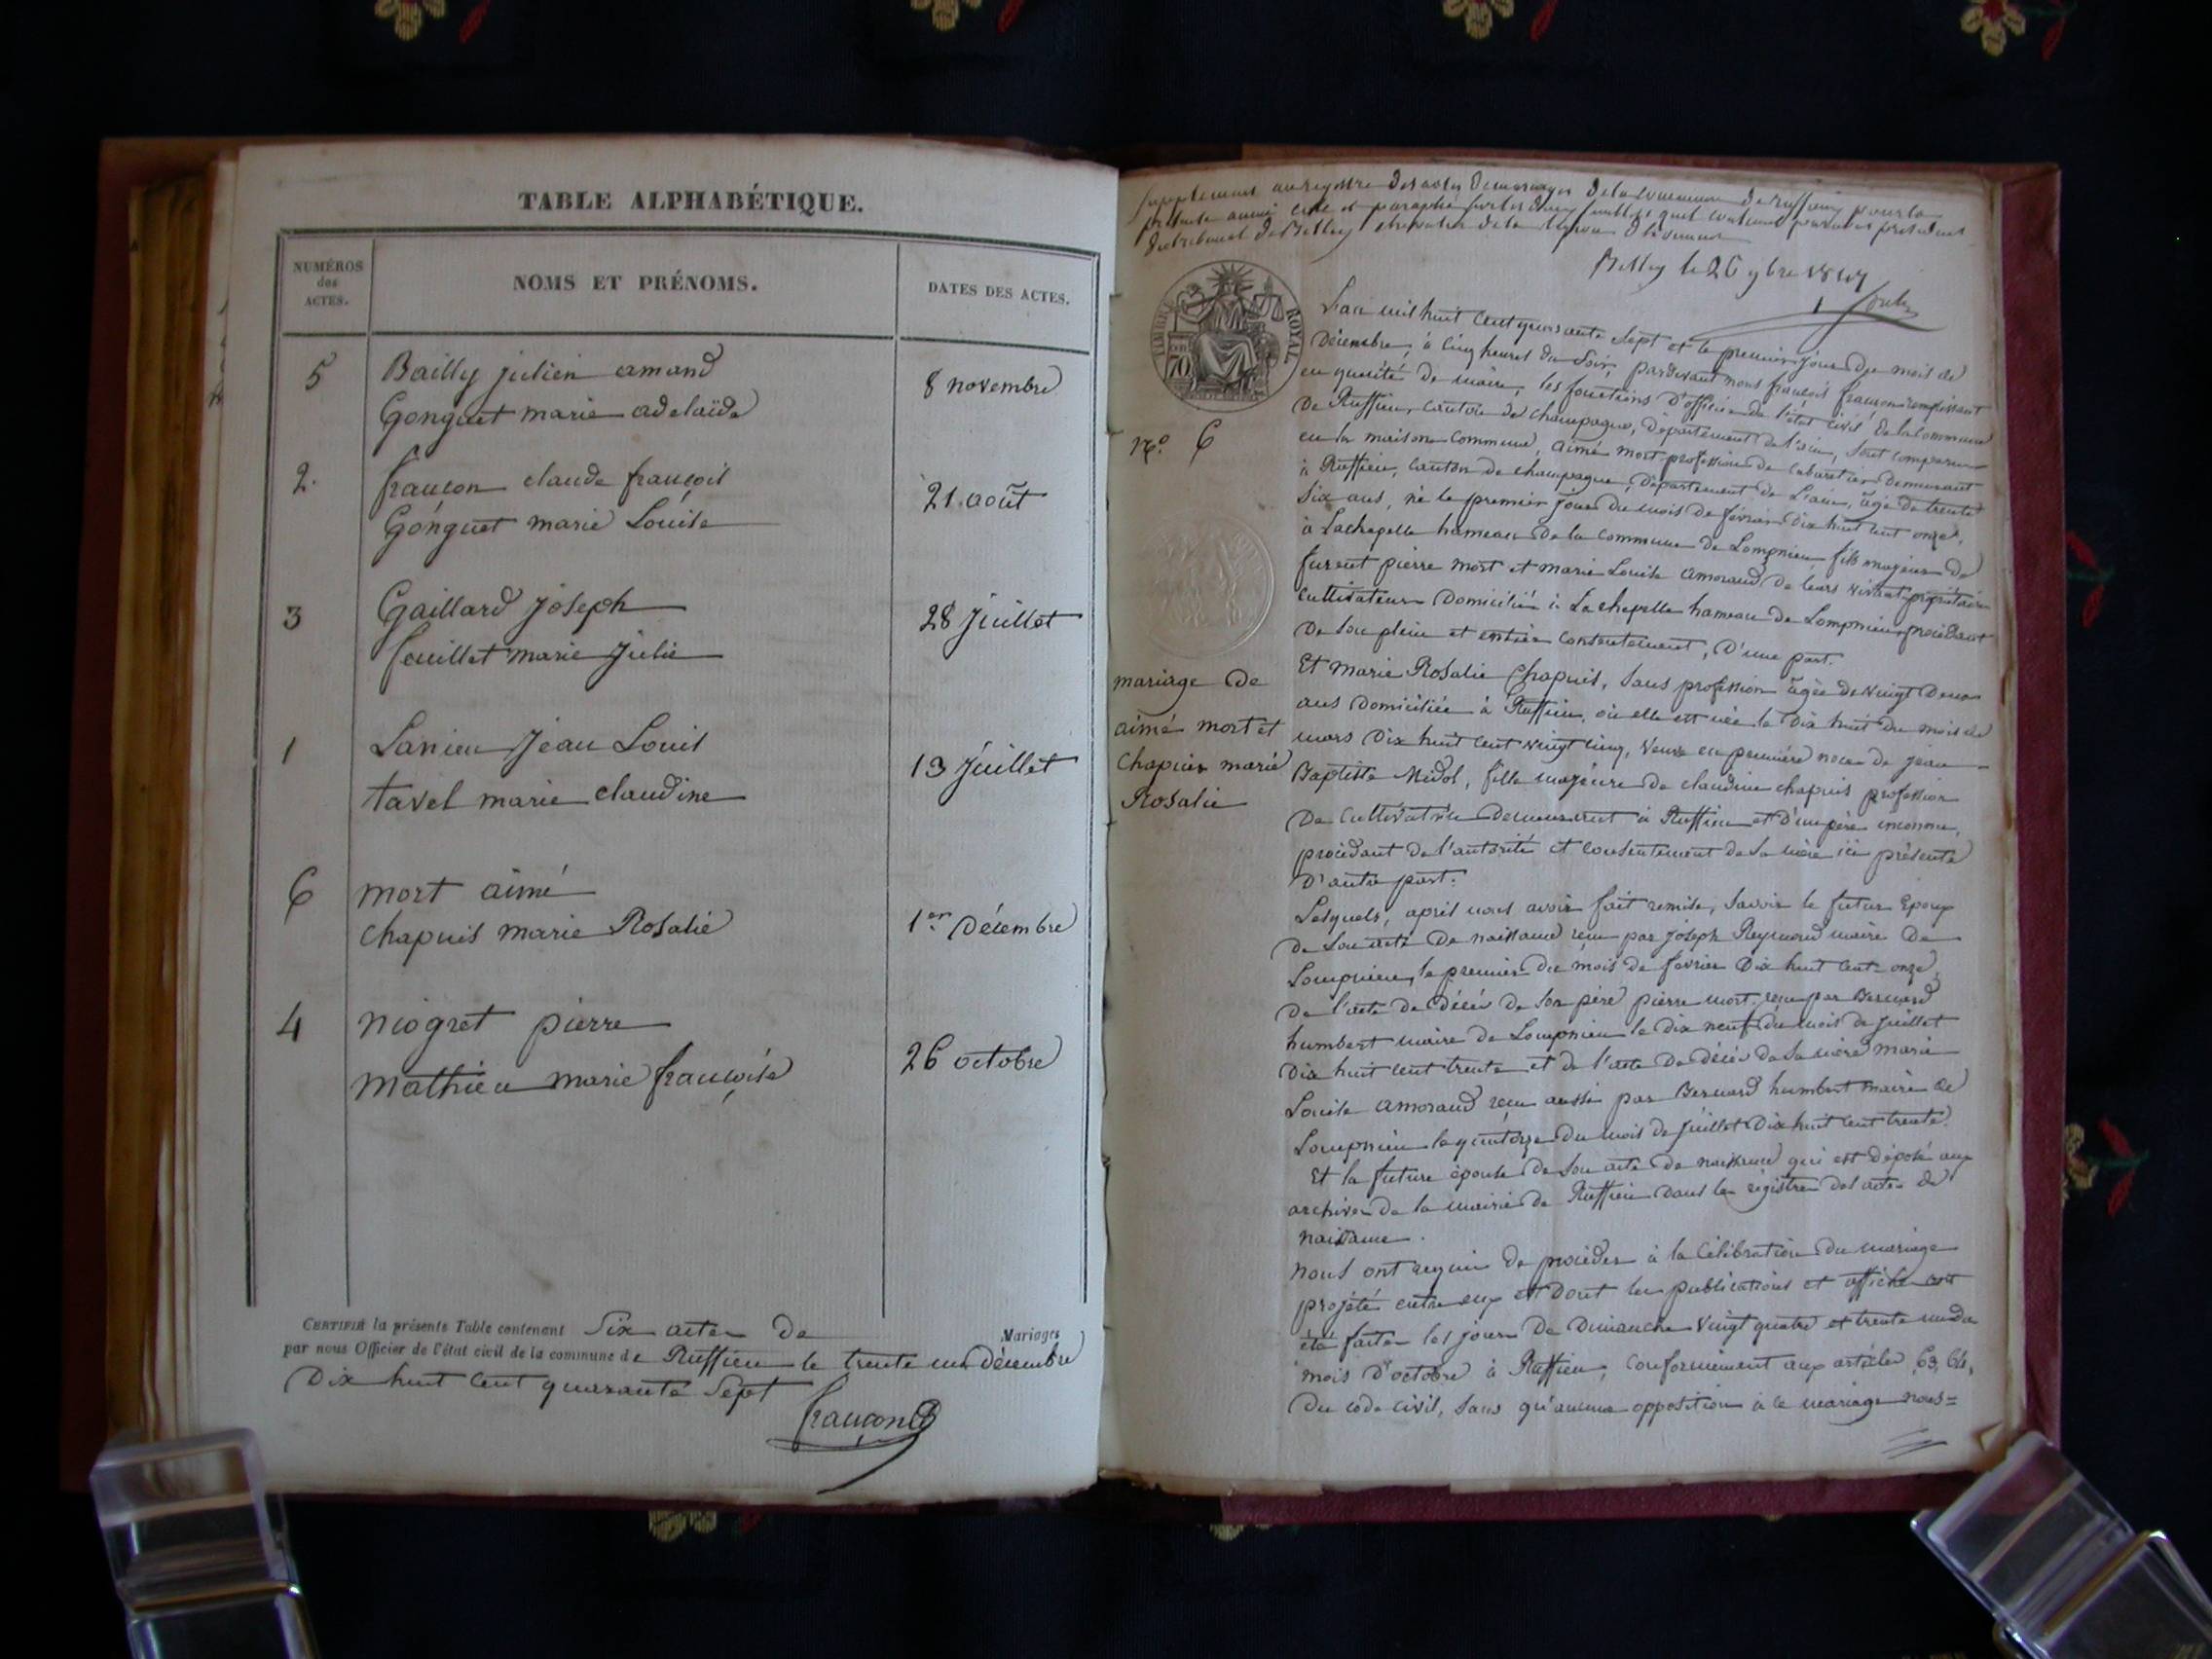 TABLE ALPHABÉTIQUE.
NUMÉROS
des
ACTES.
NOMS ET PRÉNOMS.
DATES DES ACTES.
5 Bailly julien amand
Gonguet marie adelaïde
8 novembre
2. françon claude françois
Gonguet marie Louise
21 août
3 Gaillard joseph
feuillet marie julie
28 juillet
1 Lanieu jean Louis
tavel marie claudine
13 juillet
6 mort aimé
chapuis marie Rosalie
1er Décembre
4 niogret pierre
mathieu marie françoise
26 octobre
CERTIFIÉ la présente Table contenant Six actes de Mariages
par nous Officier de l'état civil de la commune de Ruffieu le trente un décembre
Dix huit cent quarante Sept
françon
Supplément au registre des actes de mariages de la commune de Ruffieu pour la
présente année coté et paraphé par président
du tribunal de Belley chevalier de la légion d'honneur
Belley le 26 9bre 1847
TIMBRE ROYAL
70
L'an mil huit cent quarante Sept et le premier jour du mois de
Décembre, à cinq heures du Soir, pardevant nous françois françon remplissant
en qualité de maire, les fonctions d'officier de l'état civil de la commune
de Ruffieu, canton de champagne, département de l'ain, sont comparus
en la maison commune, aimé mort profession de cabaretier demeurant
à Ruffieu, canton de champagne, département de L'ain, âgé de trente
Six ans, né le premier jour du mois de février dix huit cent onze,
à Lachapelle hameau de la commune de Lompnieu, fils majeur de
furent pierre mort et marie Louise amoraud de leurs vivant propriétaires
cultivateurs domiciliés à Lachapelle hameau de Lompnieu, procédant
de son plein et entier consentement, D'une part.
Et marie Rosalie Chapuis, sans profession âgée de vingt deux
ans domiciliée à Ruffieu, où elle est née le dix huit du mois de
mars dix huit cent vingt cinq, veuve en première noce de jean
Baptiste Midol, fille majeure de claudine chapuis profession
de cultivatrice demeurant à Ruffieu et d'un père inconnu,
procédant de l'autorité et consentement de Sa mère ici présente
D'autre part.
Lesquels, après nous avoir fait remise, Savoir le futur Epoux
de Son acte de naissance reçu par joseph Reymond maire de
Lompnieu, le premier du mois de février dix huit cent onze,
de l'acte de décès de Son père pierre mort, reçu par Bernard
humbert maire de Lompnieu le dix neuf du mois de juillet
dix huit cent trente et de l'acte de décès de Sa mère marie
Louise amoraud reçu aussi par Bernard humbert maire de
Lompnieu le quatorze du mois de juillet dix huit cent trente.
Et la future épouse de Son acte de naissance qui est déposé aux
archives de la mairie de Ruffieu dans les registres des actes de
naissance.
nous ont requis de procéder à la célébration du mariage
projeté entre eux et dont les publications et affiches ont
été faites les jours de dimanche vingt quatre et trente un du
mois d'octobre à Ruffieu, conformément aux articles 63, 64,
Du code civil, Sans qu'aucune opposition à ce mariage nous=
No. 6
mariage de
aimé mort et
Chapuis marie
Rosalie